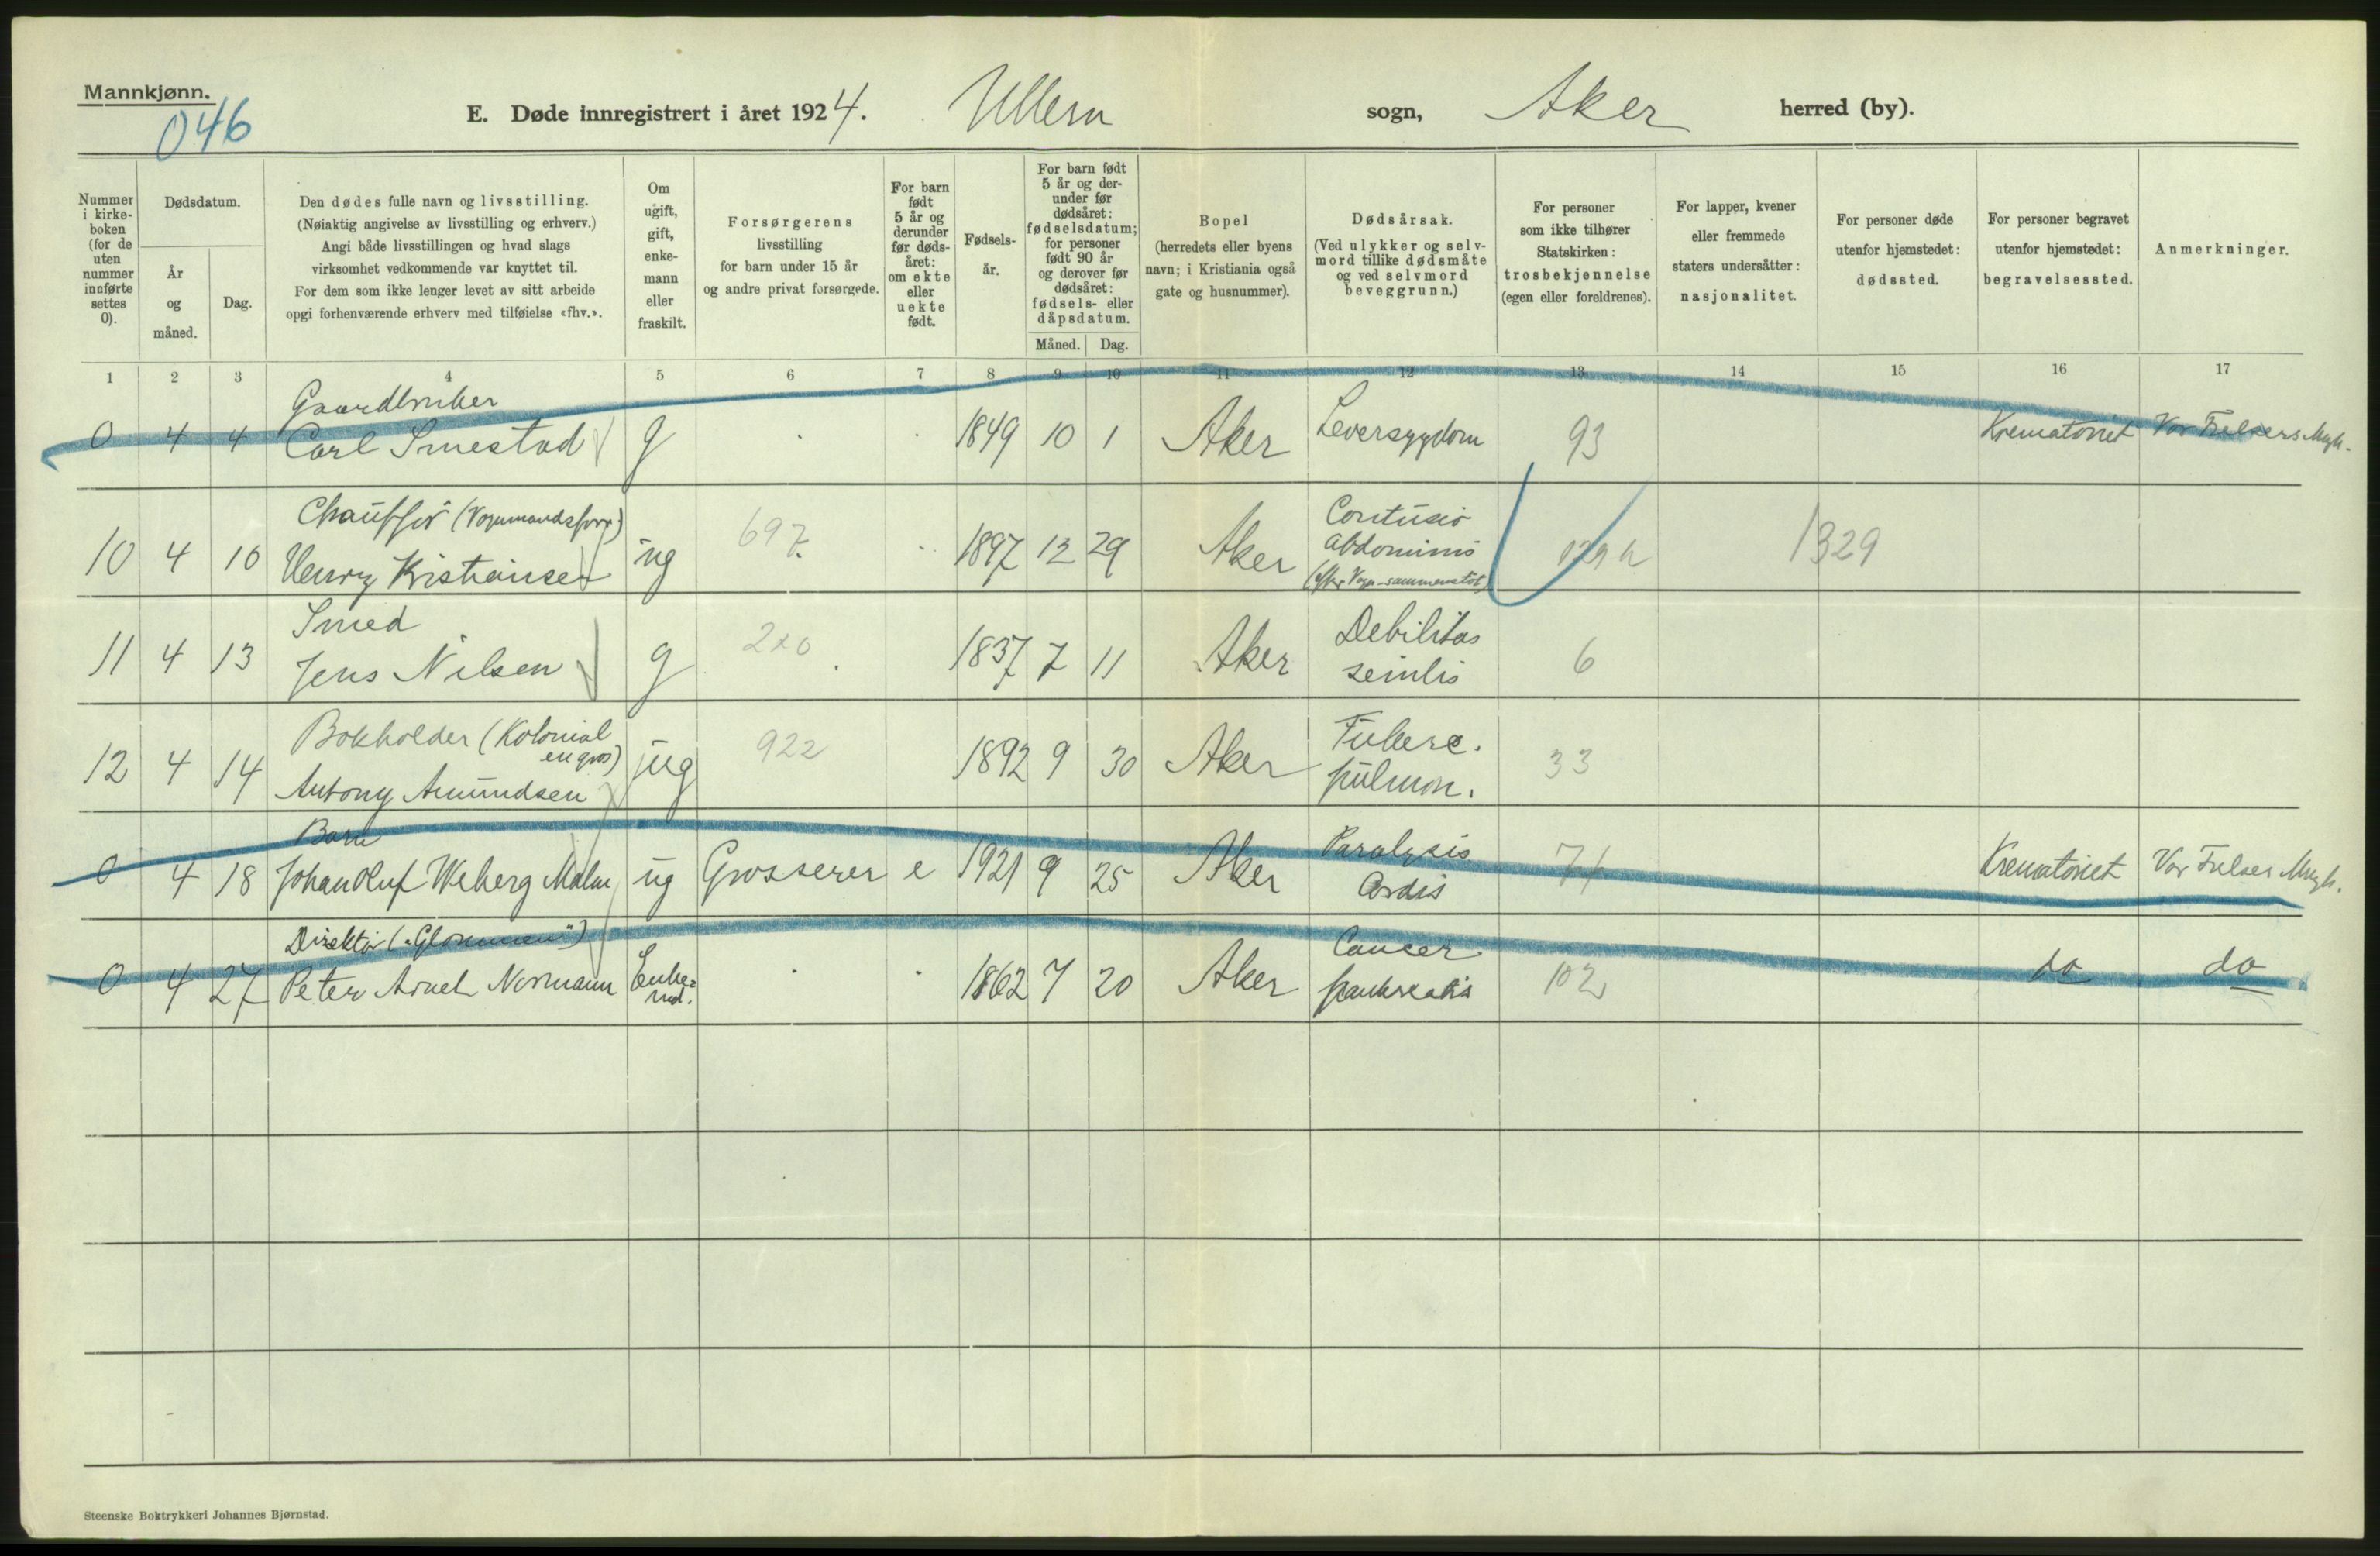 Mannkjønn.
046
E. Døde innregistrert i året 1924. Ullern sogn, Aker herred (by).
Nummer i kirke-boken (for de uten nummer innførte settes 0).
Dødsdatum.
År og måned.
Dag.
Den dødes fulle navn og livsstilling.
(Nøiaktig angivelse av livsstilling og erhverv.)
Angi både livsstillingen og hvad slags
virksomhet vedkommende var knyttet til.
For dem som ikke lenger levet av sitt arbeide
opgi forhenværende erhverv med tilføielse «fhv.».
Om ugift, gift, enke-mann eller fraskilt.
Forsørgerens
livsstilling
for barn under 15 år
og andre privat forsørgede.
For barn født 5 år og derunder før døds-året: om ekte eller uekte født.
Fødsels-år.
For barn født 5 år og der-under før dødsåret: fødselsdatum; for personer født 90 år og derover før dødsåret: fødsels- eller dåpsdatum.
Måned. Dag.
Bopel
(herredets eller byens
navn; i Kristiania også
gate og husnummer).
Dødsårsak.
(Ved ulykker og selv-
mord tillike dødsmåte
og ved selvmord
beveggrunn.)
For personer
som ikke tilhører
Statskirken:
trosbekjennelse
(egen eller foreldrenes).
For lapper, kvener
eller fremmede
staters undersåtter:
nasjonalitet.
For personer døde
utenfor hjemstedet:
dødssted.
For personer begravet
utenfor hjemstedet:
begravelsessted.
Anmerkninger.
1 2 3 4 5 6 7 8 9 10 11 12 13 14 15 16 17
Gaardbruker
0 4 4 Carl Smestad g 1849 10 1 Aker Leversygdom 93 Krematoriet Vor Frelsers Mgh.
Chauffør (Vognmandsforr)
10 4 10 Henry Kristiansen ug 697 1897 12 29 Aker Contusio abdominis 1329
Smed
11 4 13 Jens Nilsen g 220 1837 7 11 Aker Debilitas senilis 6
Bokholder (Kolonial en gros)
12 4 14 Antony Amundsen ug 922 1892 9 30 Aker Tuberc. pulmon. 33
Barn
0 4 18 Johan Oluf Weberg Malm ug Grosserer e 1921 9 25 Aker Paralysis Cordis 74 Krematoriet Vor Frelser Mgh.
Direktør ("Glommen")
0 4 27 Peter Arnet Normann Enkemd. 1862 7 20 Aker Cancer pankreatis 102 do do
Steenske Boktrykkeri Johannes Bjørnstad.